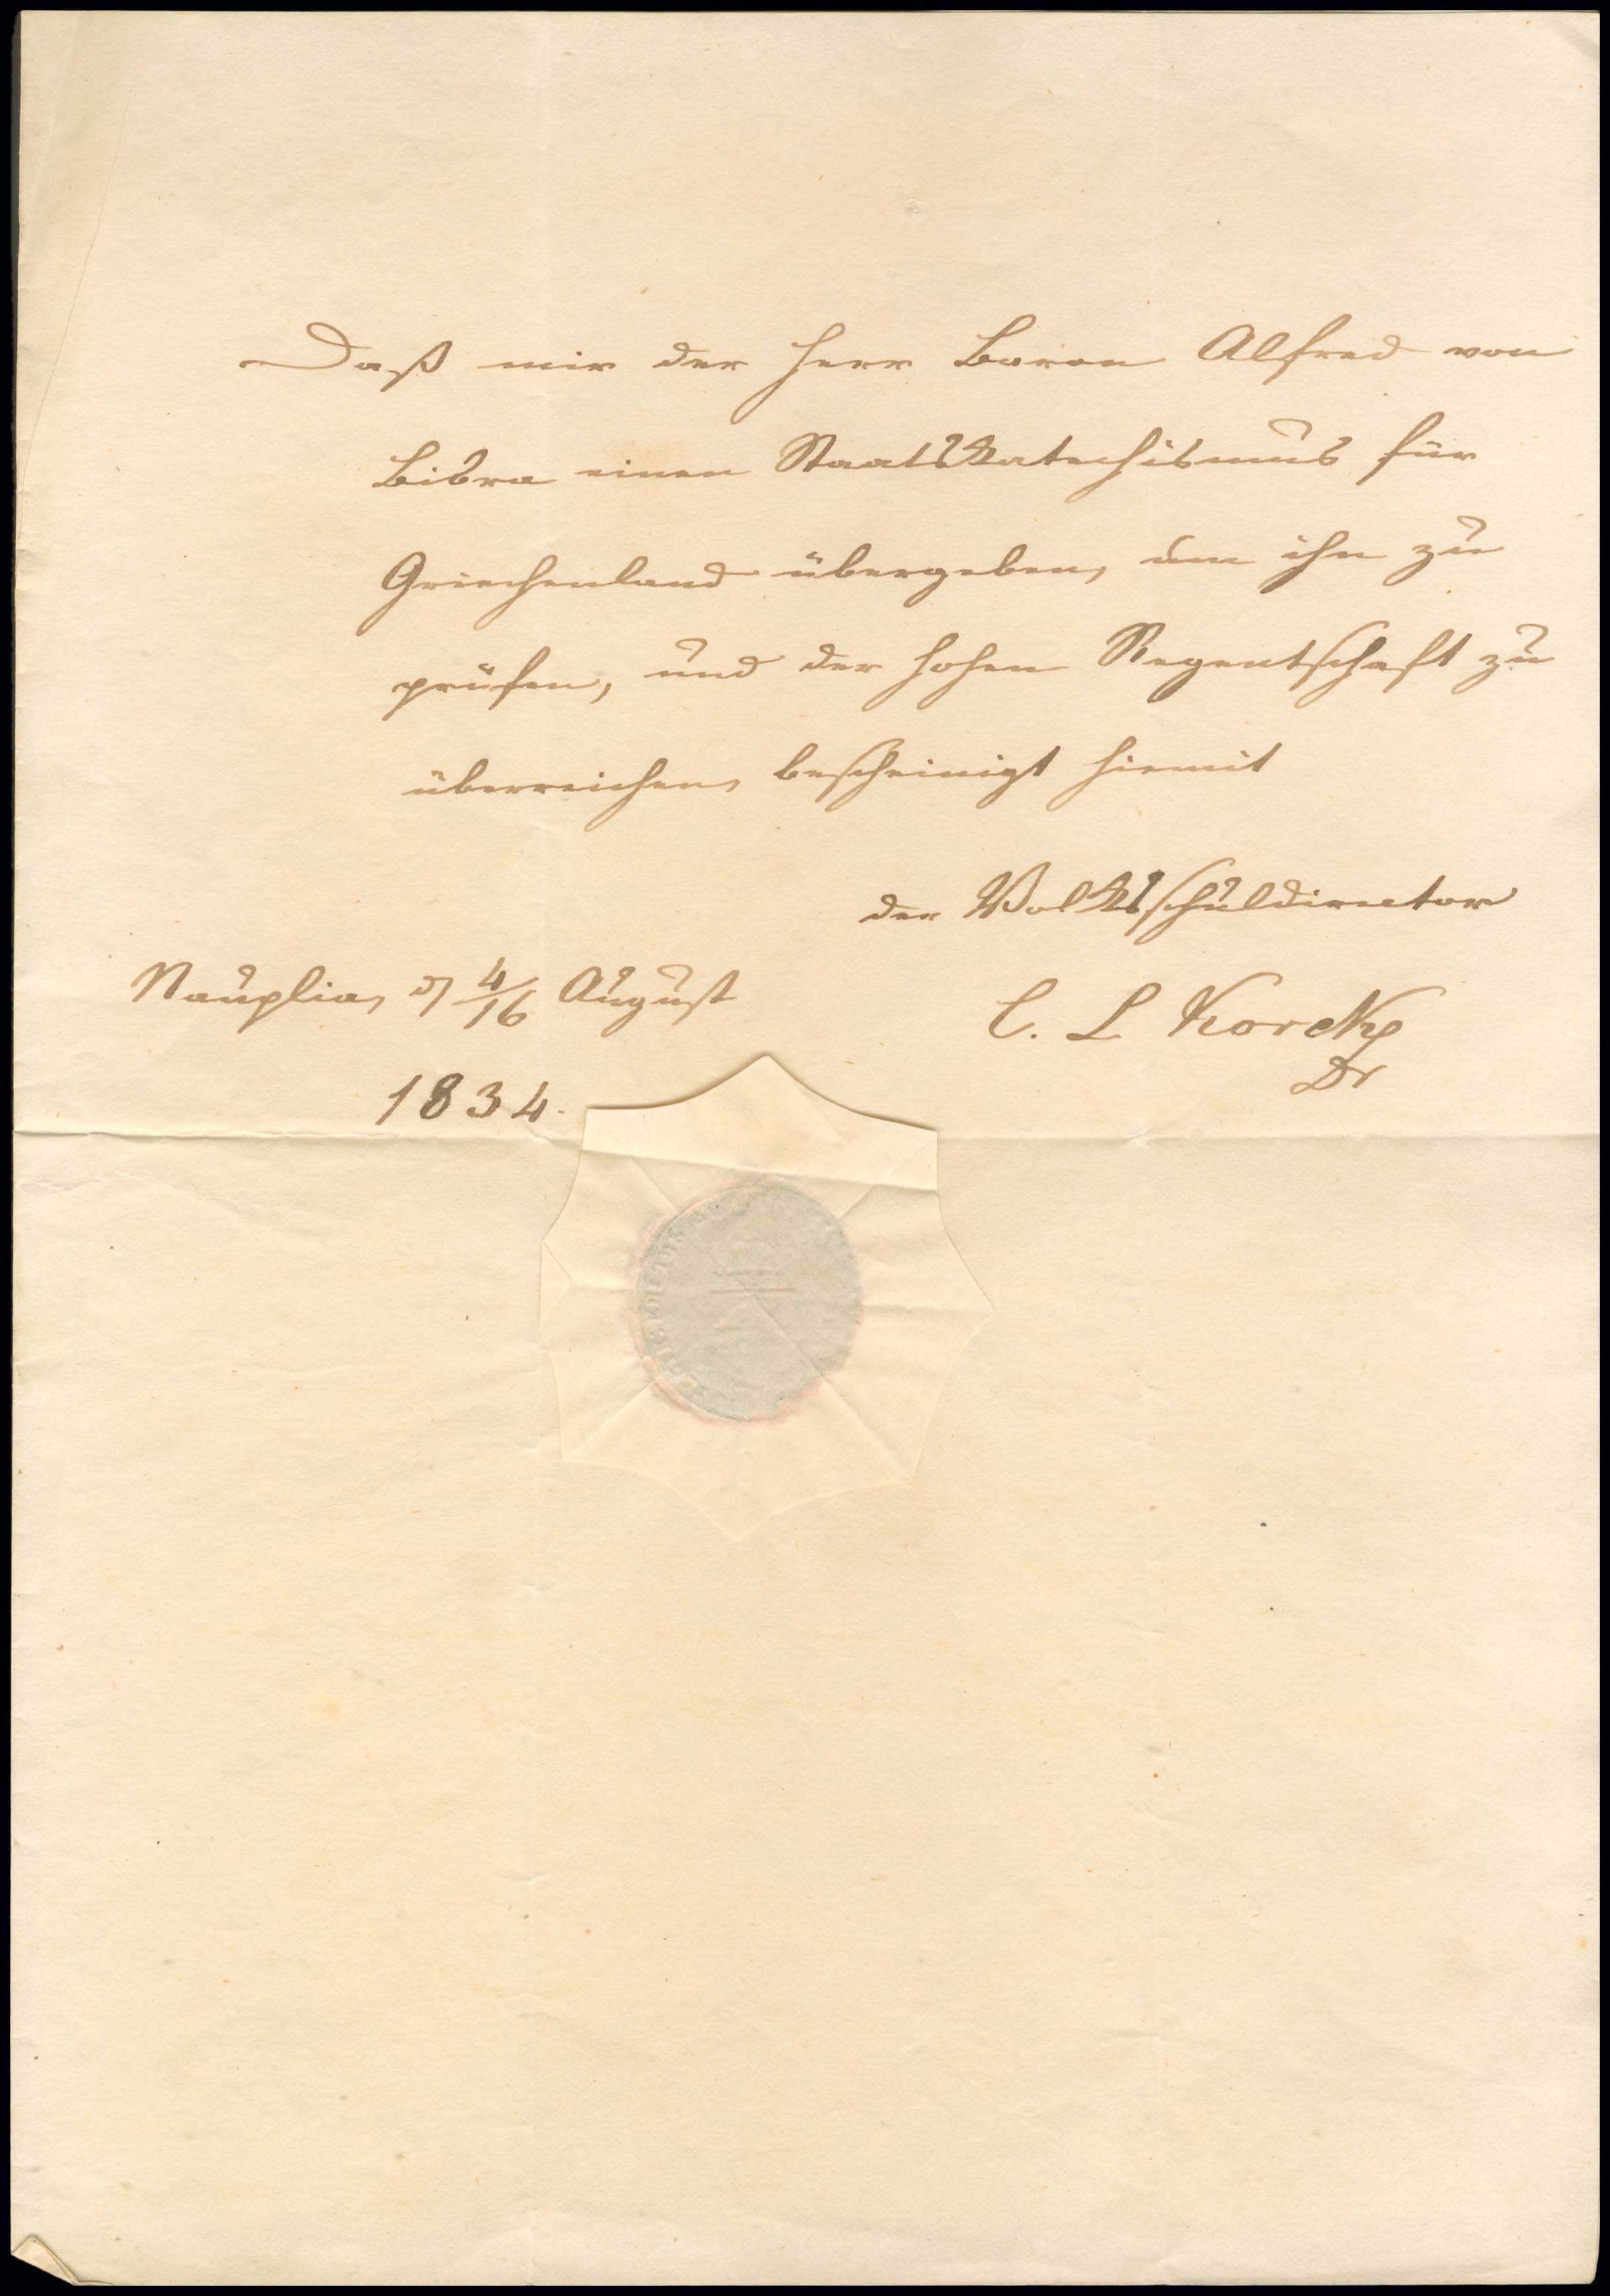 Daß mir der Herr Baron Alfred von
Bibra einen Staatskatechismus für
Griechenland übergeben, um ihn zu
prüfen, und der hohen Regentschaft zu
überreichen, bescheinigt hiemit
der Volksschuldirector
Nauplia, d 4/16 August
C. L Korck
Dr
1834.